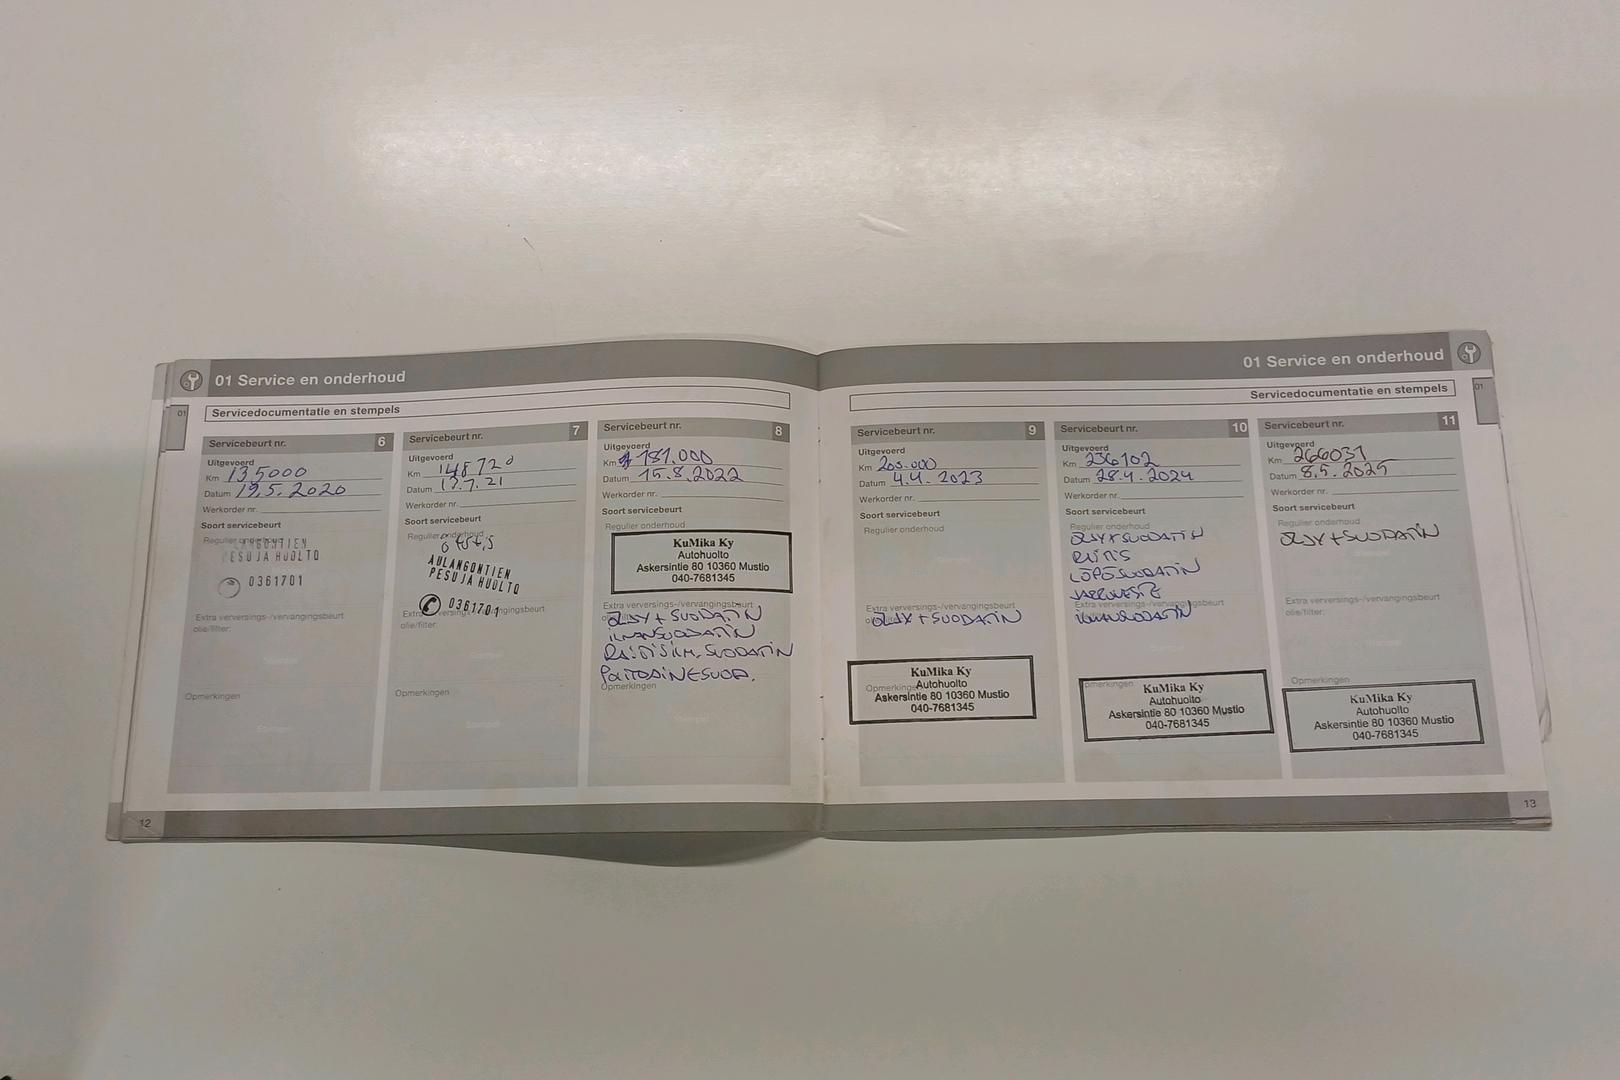 01 Service en onderhoud
01
Servicedocumentatie en stempels
Servicebeurt nr. 6
Uitgevoerd
Km 135000
Datum 19.5.2020
Werkorder nr.
Soort servicebeurt
Regulier onderhoud
PESU JA HUOLTO
0361701
Extra verversings-/vervangingsbeurt
olie/filter:
Stempel
Opmerkingen
Stempel
Servicebeurt nr. 7
Uitgevoerd
Km 148720
Datum 17.7.21
Werkorder nr.
Soort servicebeurt
Regulier onderhoud
AULANGONTIEN
PESU JA HUOLTO
0361701
Extra verversings-/vervangingsbeurt
olie/filter:
Stempel
Opmerkingen
Stempel
Servicebeurt nr. 8
Uitgevoerd
Km 181.000
Datum 15.8.2022
Werkorder nr.
Soort servicebeurt
Regulier onderhoud
KuMika Ky
Autohuolto
Askersintie 80 10360 Mustio
040-7681345
Extra verversings-/vervangingsbeurt
ÖLJY + SUODATIN
ILMANSUODATIN
RAITISILM.SUODATIN
POLTTOAINESUOD.
Opmerkingen
Stempel
12
01 Service en onderhoud
01
Servicedocumentatie en stempels
Servicebeurt nr. 9
Uitgevoerd
Km 205.000
Datum 4.4.2023
Werkorder nr.
Soort servicebeurt
Regulier onderhoud
Extra verversings-/vervangingsbeurt
ÖLJY + SUODATIN
Opmerkingen
KuMika Ky
Autohuolto
Askersintie 80 10360 Mustio
040-7681345
Servicebeurt nr. 10
Uitgevoerd
Km 236102
Datum 28.4.2024
Werkorder nr.
Soort servicebeurt
Regulier onderhoud
ÖLJY+SUODATIN
RAITIS
JARRUNESTE
Extra verversings-/vervangingsbeurt
ILMANSUODATIN
Opmerkingen
KuMika Ky
Autohuolto
Askersintie 80 10360 Mustio
040-7681345
Servicebeurt nr. 11
Uitgevoerd
Km 266031
Datum 8.5.2025
Werkorder nr.
Soort servicebeurt
Regulier onderhoud
ÖLJY + SUODATIN
Stempel
Extra verversings-/vervangingsbeurt
olie/filter:
Opmerkingen
KuMika Ky
Autohuolto
Askersintie 80 10360 Mustio
040-7681345
13